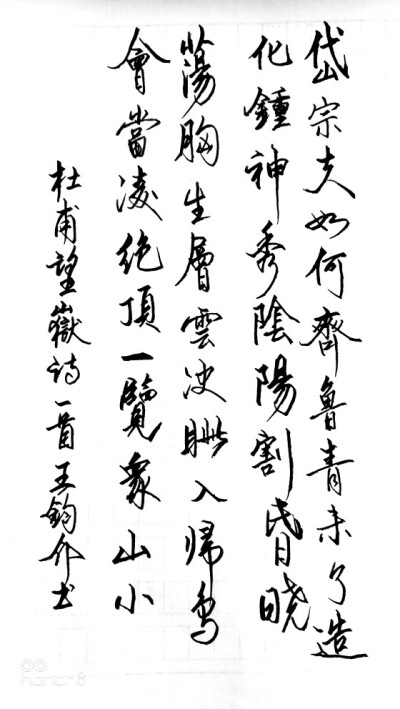 岱宗夫如何齊魯青未了造
化鍾神秀陰陽割昏曉
蕩胸生層雲決眥入歸鳥
會當凌絕頂一覽衆山小
杜甫望嶽诗一首王鈞介书
honor 8